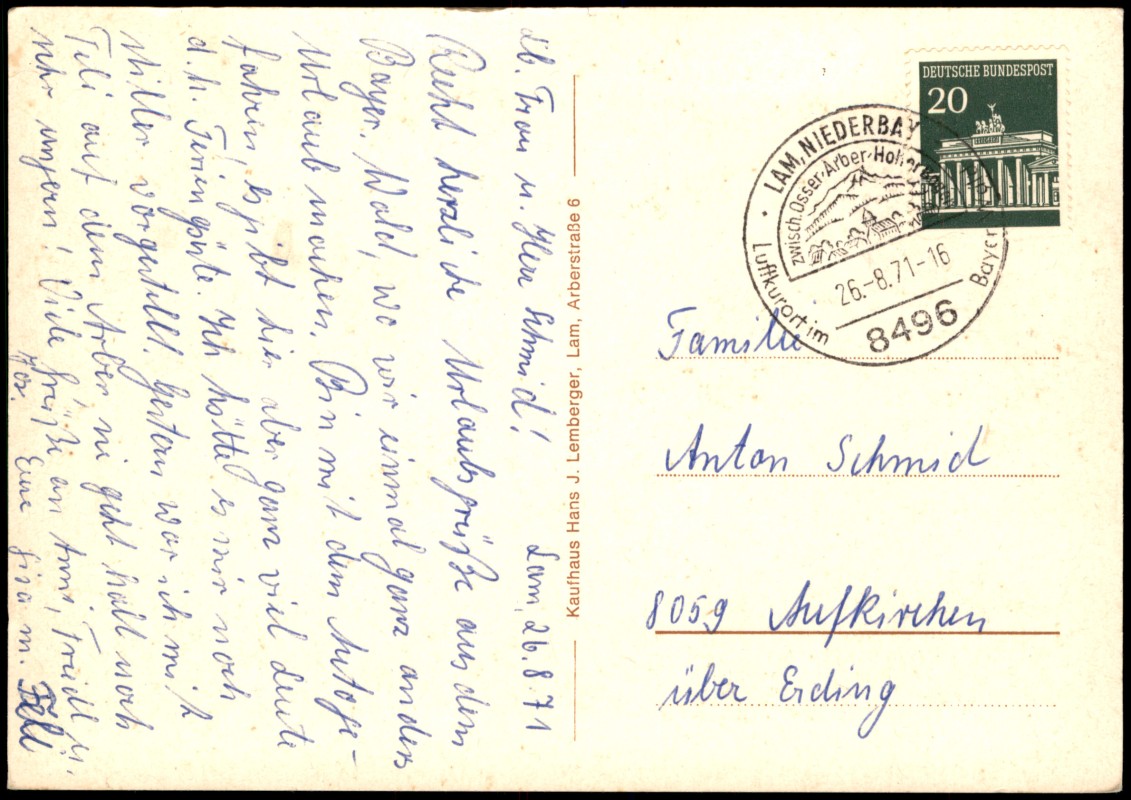 Lam, 26.8.71
lb. Frau u. Herr Schmid!
Recht herzliche Urlaubsgrüße aus dem
Bayer. Wald, wo wir einmal ganz anders
Urlaub machen. Bin mit dem Auto ge-
fahren, es gibt hier aber ganz viel Leute
d. h. Feriengäste. Ich hätte es mir noch
stiller vorgestellt. Gestern war ich mit
Feli auf dem Arber ni geht halt noch
sehr ungern! Viele Grüße an Anni, Friedl u.
Jos. Eure m. Feli
Kaufhaus Hans J. Lemberger, Lam, Arberstraße 6
DEUTSCHE BUNDESPOST
20
LAM, NIEDERBAY
Zwisch. Osser-Arber-Hoh
26.-8.71-16
8496
Luftkurort im Bayer
Familie
Anton Schmid
8059 Aufkirchen
über Erding